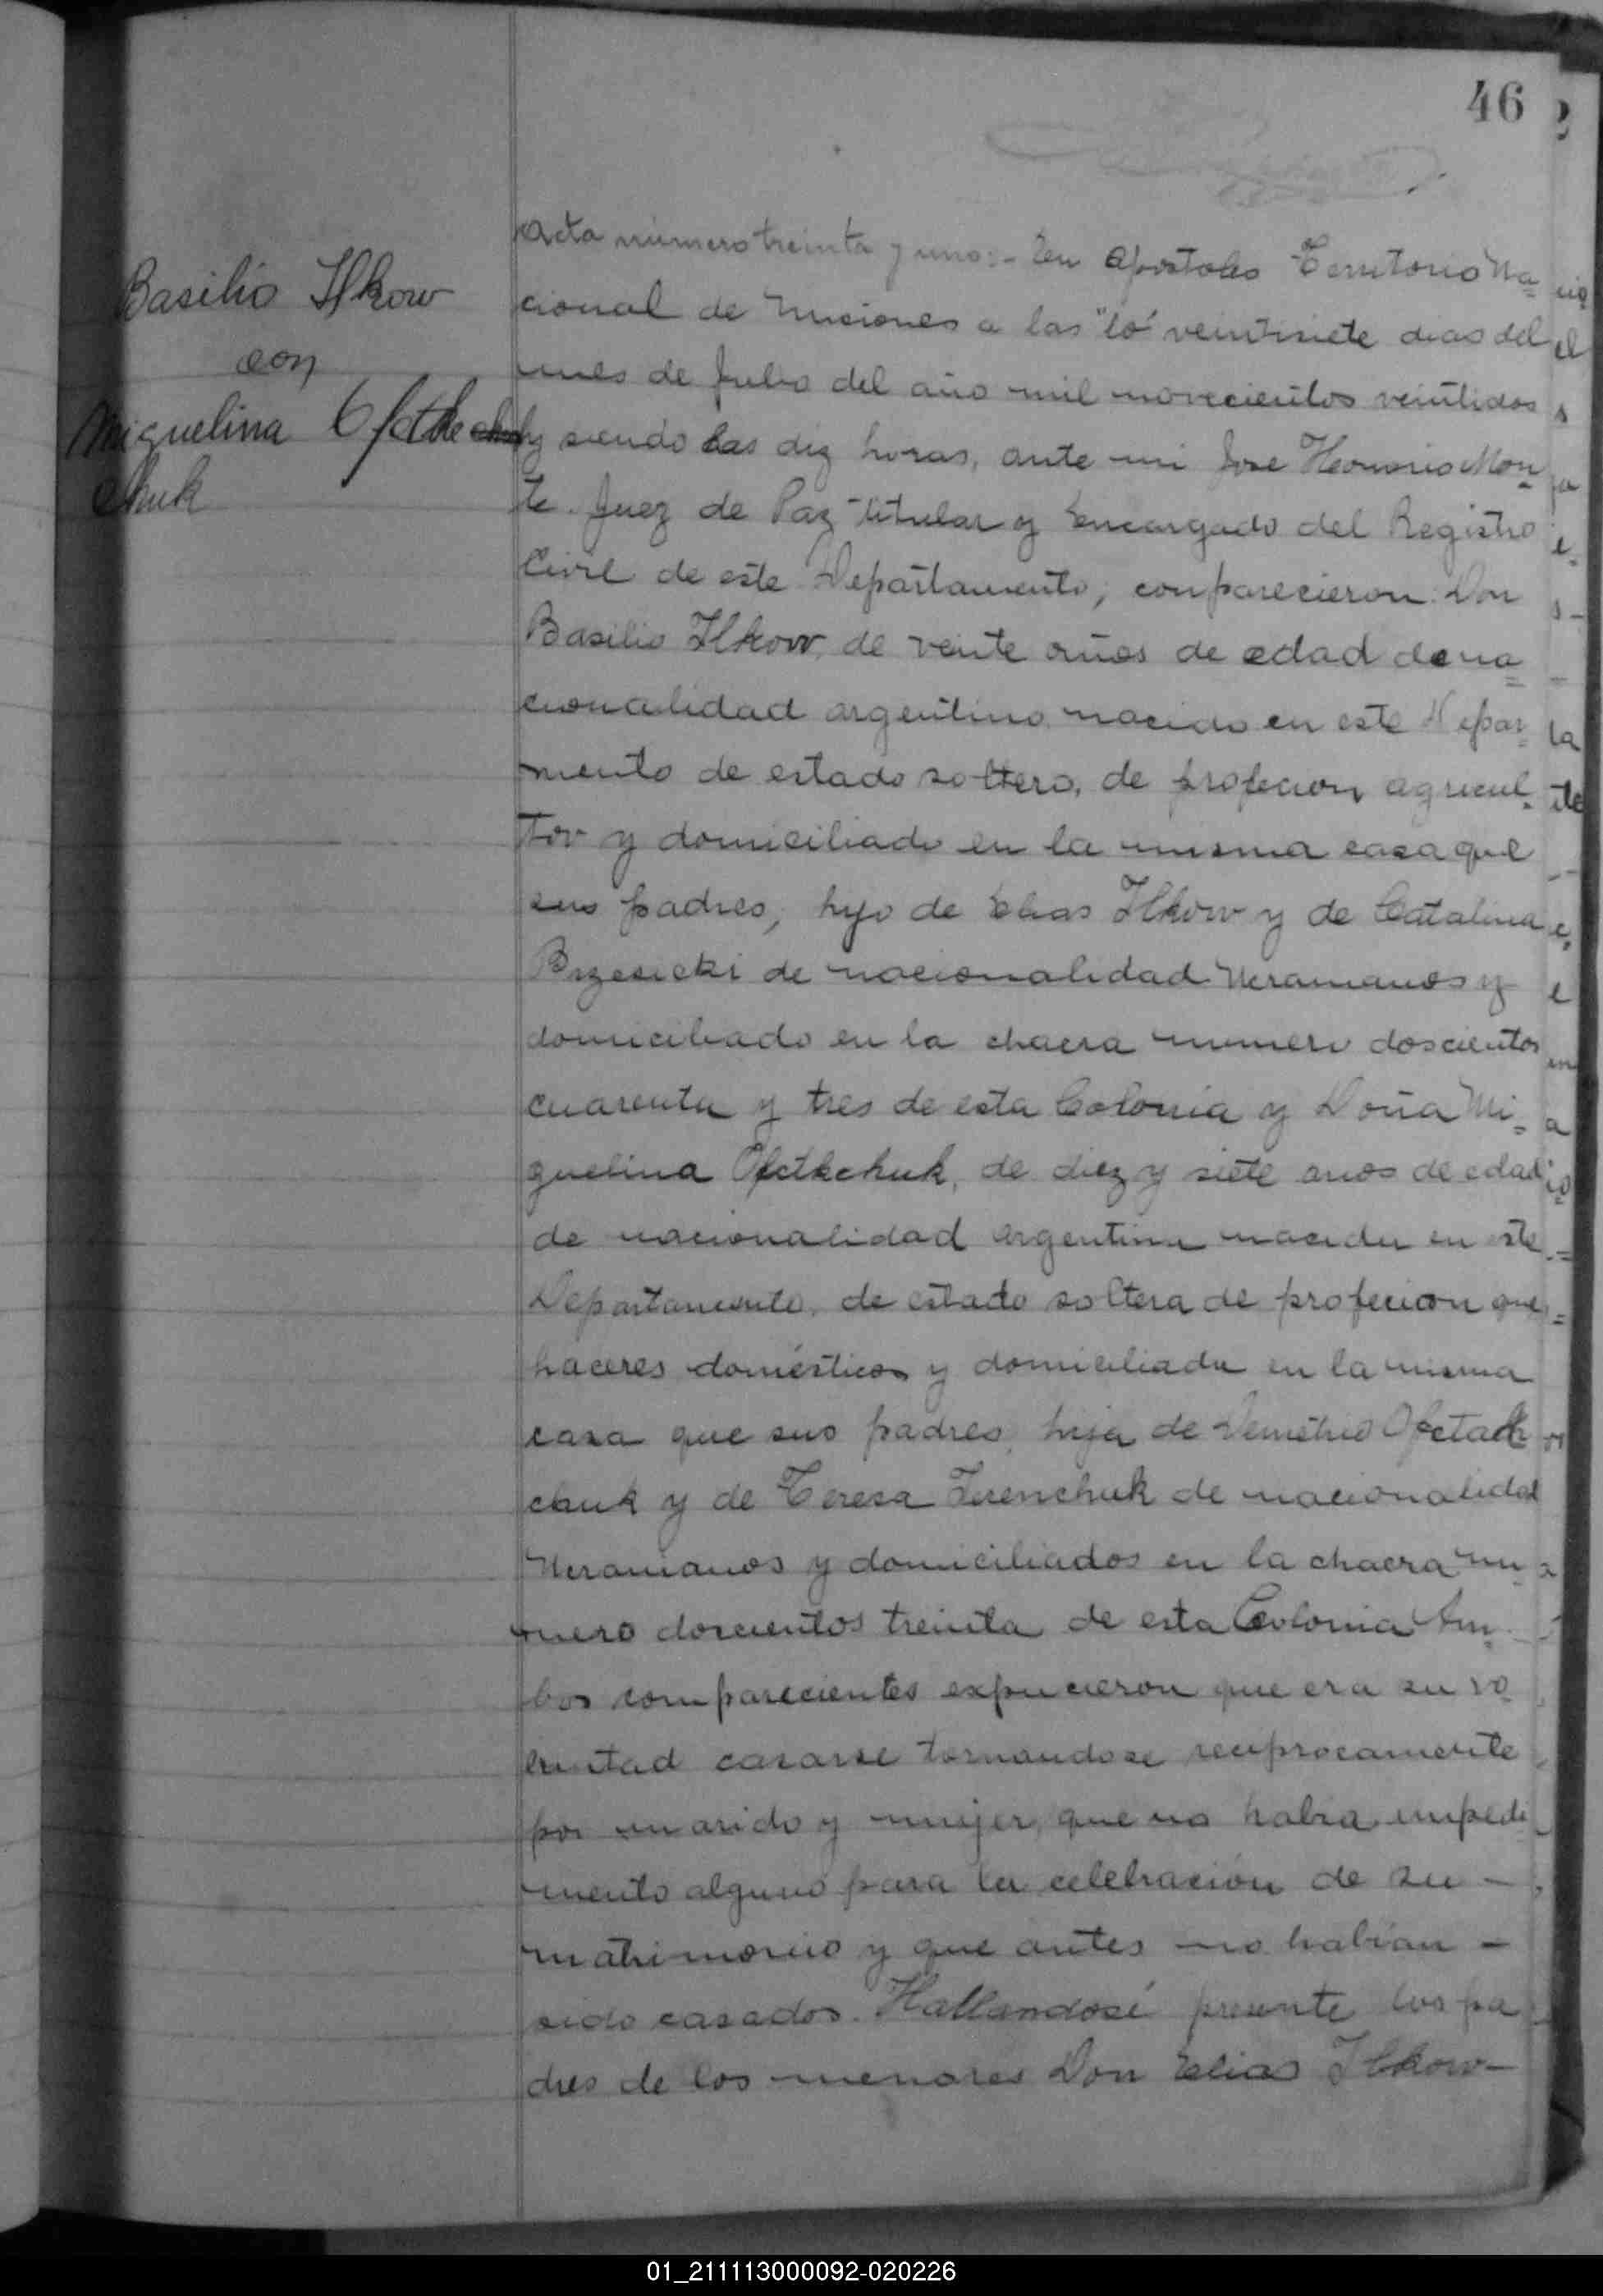 46
Basilio Ilkow
con
Miguelina
chuk
Acta número treinta y uno:- En Apostoles Territorio Na=
cional de Misiones a los veintisiete dias del
mes de Julio del año mil novecientos veintidos
y siendo las diz horas, ante mi Jose Honorio Mon=
te Juez de Paz titular y Encargado del Registro
Civil de este Departamento, conparecieron: Don
Basilio Ilkow, de veinte años de edad de na=
cionalidad argentino nacido en este Depar=
mento de estado soltero, de profecion agricul=
tor y domiciliado en la misma casa que
sus padres, hijo de Elias Ilkow y de Catalina
Brzesicki de nacionalidad Ucranianos y
domiciliado en la chacra numero doscientos
cuarenta y tres de esta Colonia y Doña Mi=
guelina Ofetkchuk, de diez y siete anos de edad
de nacionalidad argentina nacida en este
Departamento, de estado soltera de profecion que
haceres domésticos y domiciliada en la misma
casa que sus padres, hija de Demetrio
chuk y de Teresa Terenchuk de nacionalidad
Ucranianos y domiciliados en la chacra nu=
mero doscientos treinta de esta Colonia Am=
bos comparecientes expucieron que era su vo
luntad casarse tomandose reciprocamente
por marido y mujer, que no habia impedi
mento alguno para la celebración de su -
matrimonio y que antes no habian -
sido casados. Hallandosé presente los pa
dres de los menores Don Elias Ilkow-
01_211113000092-020226